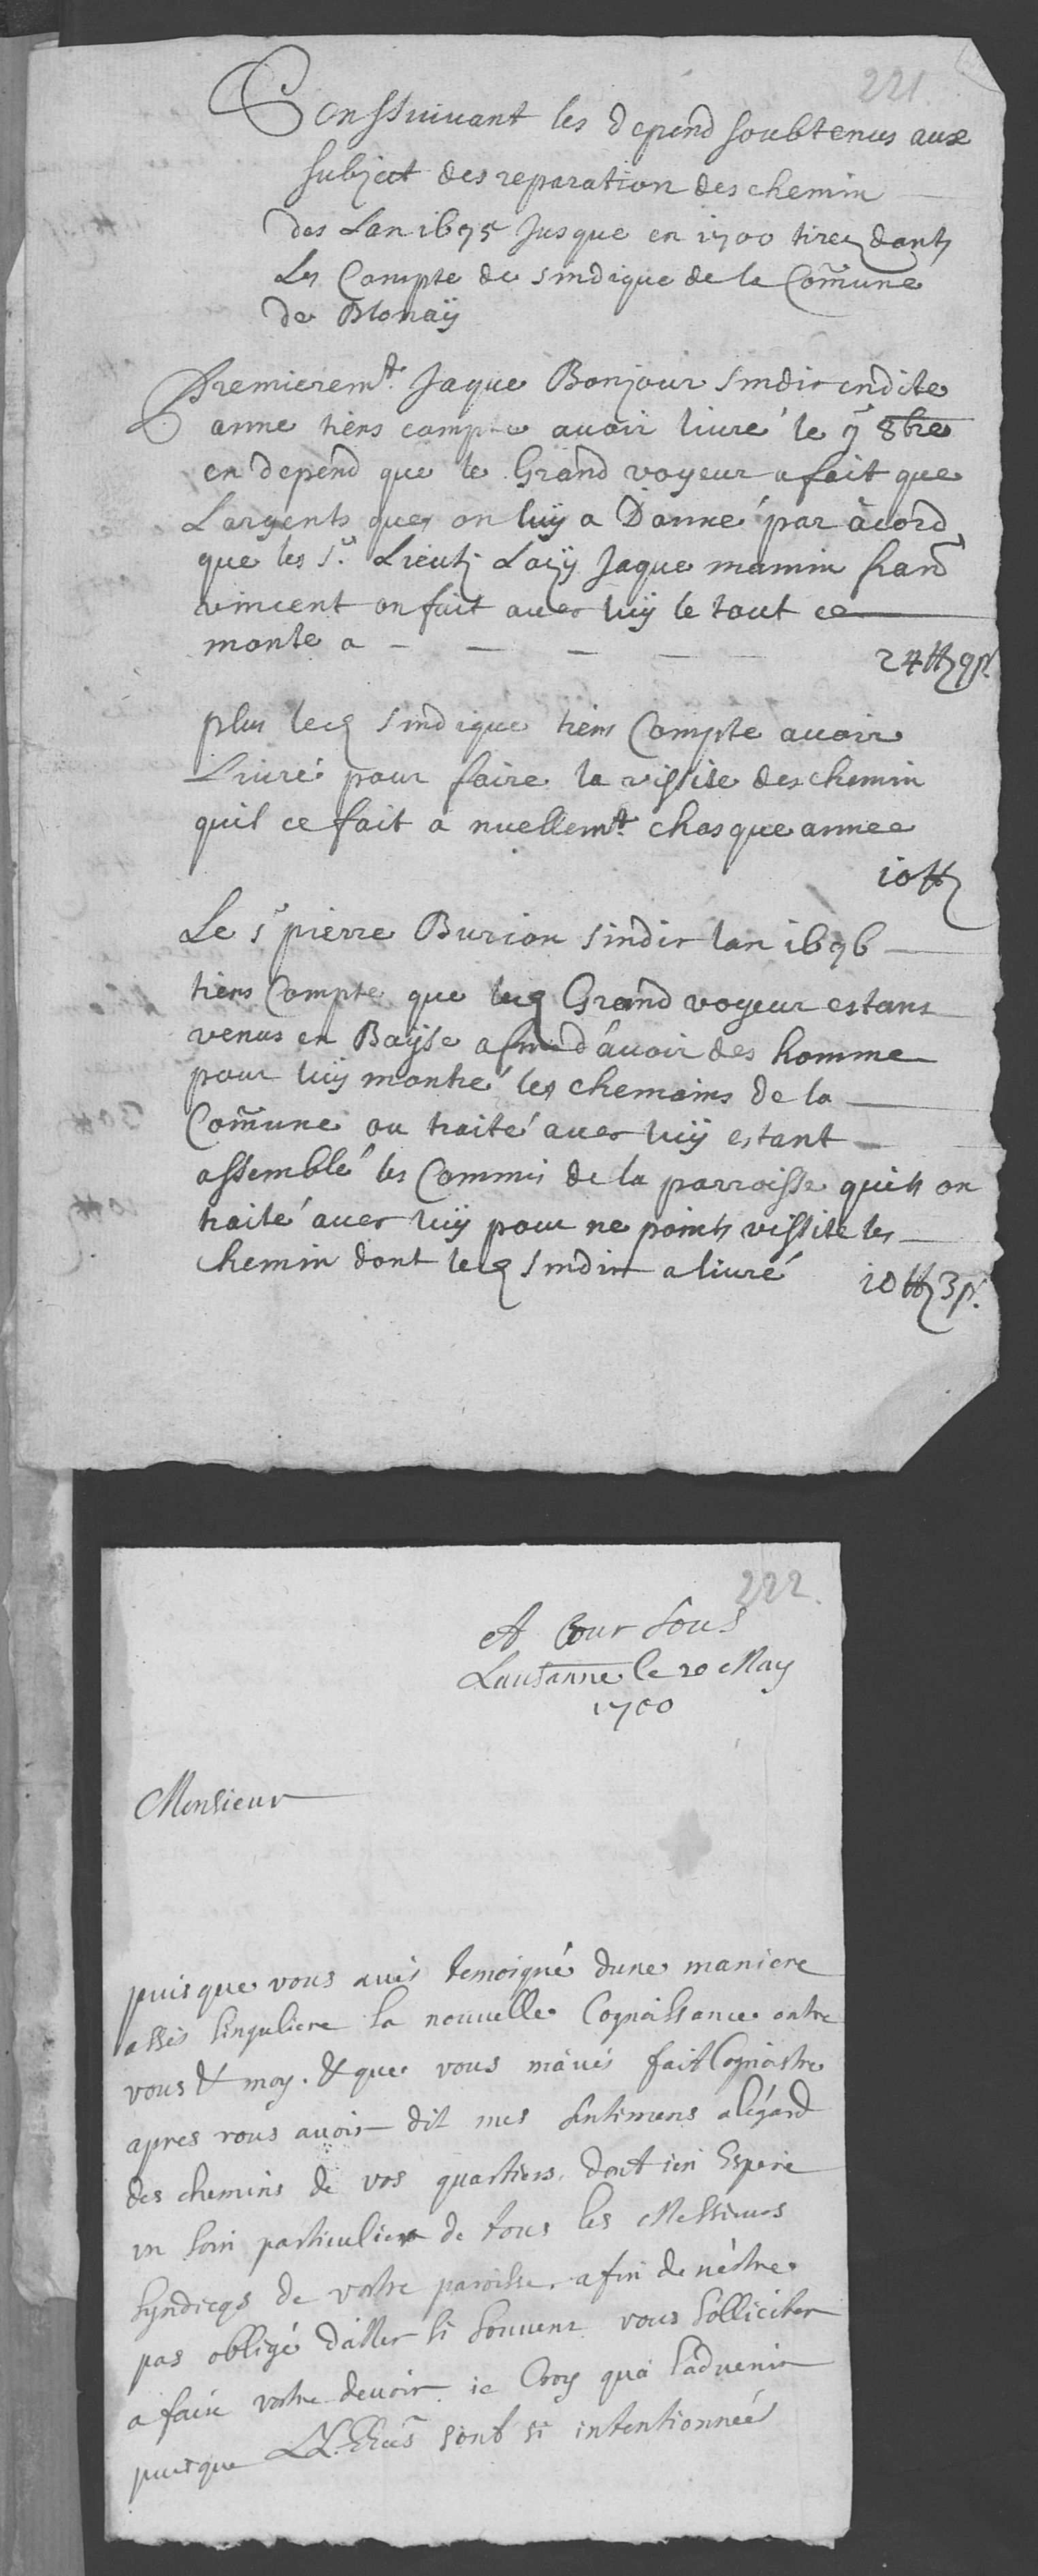 221
Conssuivant les depend soubtenus aux
subject des reparation des chemin
des Lan 1695 Jusque en 1700 tirez dants
Les Compte de sindique de la Com̃une
de Blonaÿ
Premieremt. Jaque Bonjour sindic en dite
anne tiens compte avoir livré le 9 8bre
en depend que le Grand voyeur a fait que
Largents quer on luÿ a Donné par àcord
que les Sr. Lieuts Jaque mamin
vincent on fait avec luÿ le tout ce
monte a
24 ff 9 s.
plus led sindique tiens Compte avoir
Livré pour faire la vissite des chemin
quil ce fait a nuellemt. chasque annee
10 ff
Le sr pierre Burion sindic lan 1696
tiens Compte que led Grand voyeur estans
venus en Baÿse afin d'avoir des homme
pour luÿ montré les chemains de la
Com̃une ou traité avec luÿ estant
assemblé les Commis de la parroisse quils on
traité avec luÿ pour ne points vissite les
chemin dont led sindic a livré
10 ff 3 s.
222.
A Cour Sous
Lausanne le 20 May
1700
Monsieur
puis que vous avés temoigné dune maniere
assés singuliere la nouvelle Cognoissance entre
vous & moy. & que vous m'avés fait Cognoistre
apres vous avoir dit mes sentimens a légard
des chemins de vos quartiers, dont ien Espere
un soin particulier de tous les Messieurs
syndicqs de vostre paroisse. afin de n'éstre
pas obligé d'aller si souvent vous solliciter
a faire vostre devoir. ie Croy qua l'advenir
puisque LL. EEces sont si intentionneés